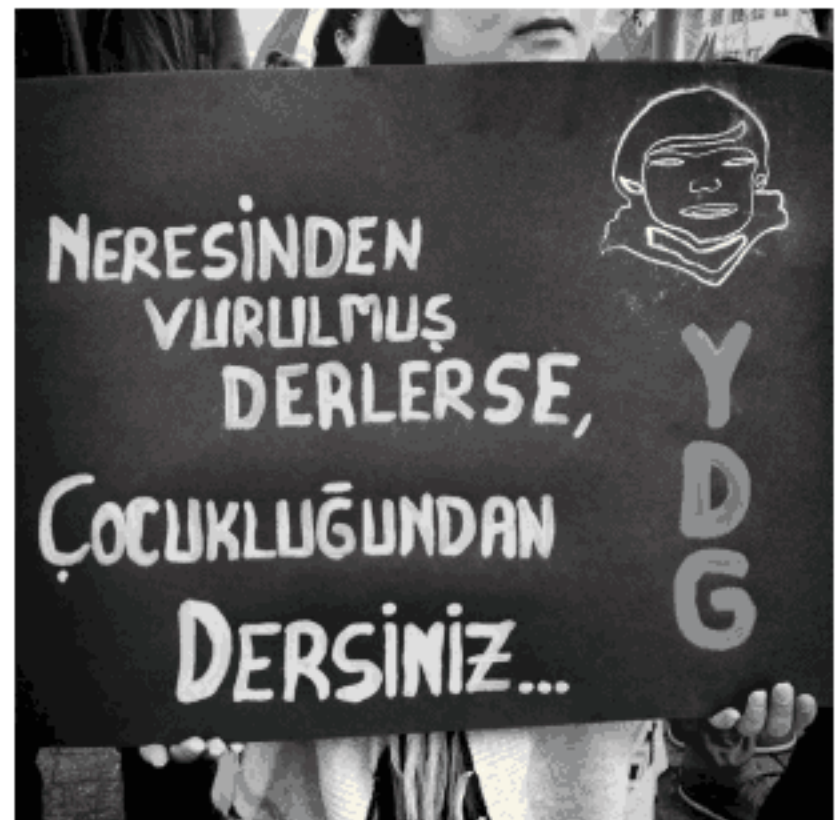 NERESİNDEN
VURULMUŞ
DERLERSE,
ÇOCUKLUĞUNDAN
DERSİNİZ...
YDG